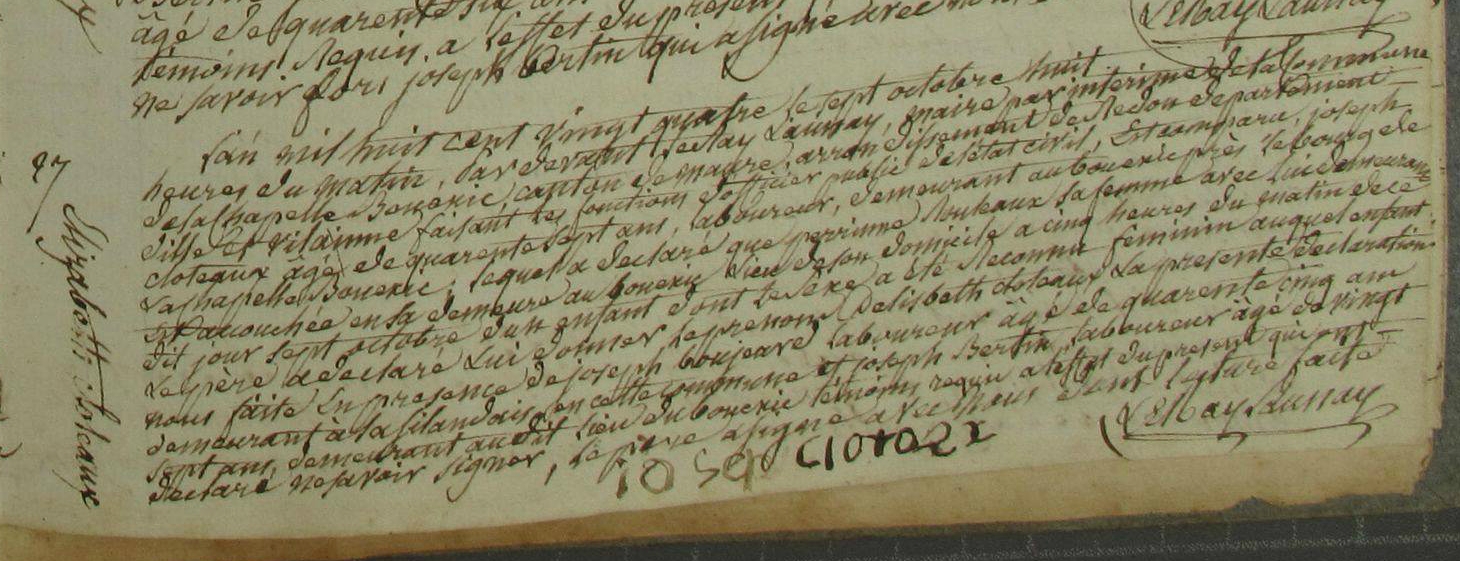 âgé de quarente six ans
témoins Requis a l'effet du present
ne savoir fors joseph Bertin qui a signé avec nous
LeMay Launay
27
Elizabeth cloteaux
L'an mil huit cent vingt quatre le sept octobre huit
heures du matin, Par devant LeMay Launay, maire par interime de la Commune
de la Chapelle Bouëxic, canton de maure, arrondissement de Redon departement
dille et vilainne faisant les fonctions d'officier public de l'état civil, Est comparu, joseph
cloteaux âgé de quarente sept ans, laboureur, demeurant au bouexic près le bourg de
La chapelle Bouexic, lequel a declaré que perrinne Rouleaux sa femme avec lui demeurante
Est accouchée en sa demeure au bouexic lieu de son domicile a cinq heures du matin de ce
dit jour sept octobre d'un enfant dont le sexe a été Reconnu feminin auquel enfant
Le père a declaré Lui donner le prenom d'elisbeth cloteaux La presente declaration
nous faite En presence de joseph boujeard laboureur âgé de quarente cinq ans
demeurant à la silandais en cette commune et joseph Bertin laboureur âgé de vingt
sept ans, demeurant au dit lieu du bouexic témoins requis a l'effet du present qui ont
declaré ne savoir signer, le père a signé avec nous dont lecture faite
clotaux
LeMay Launay